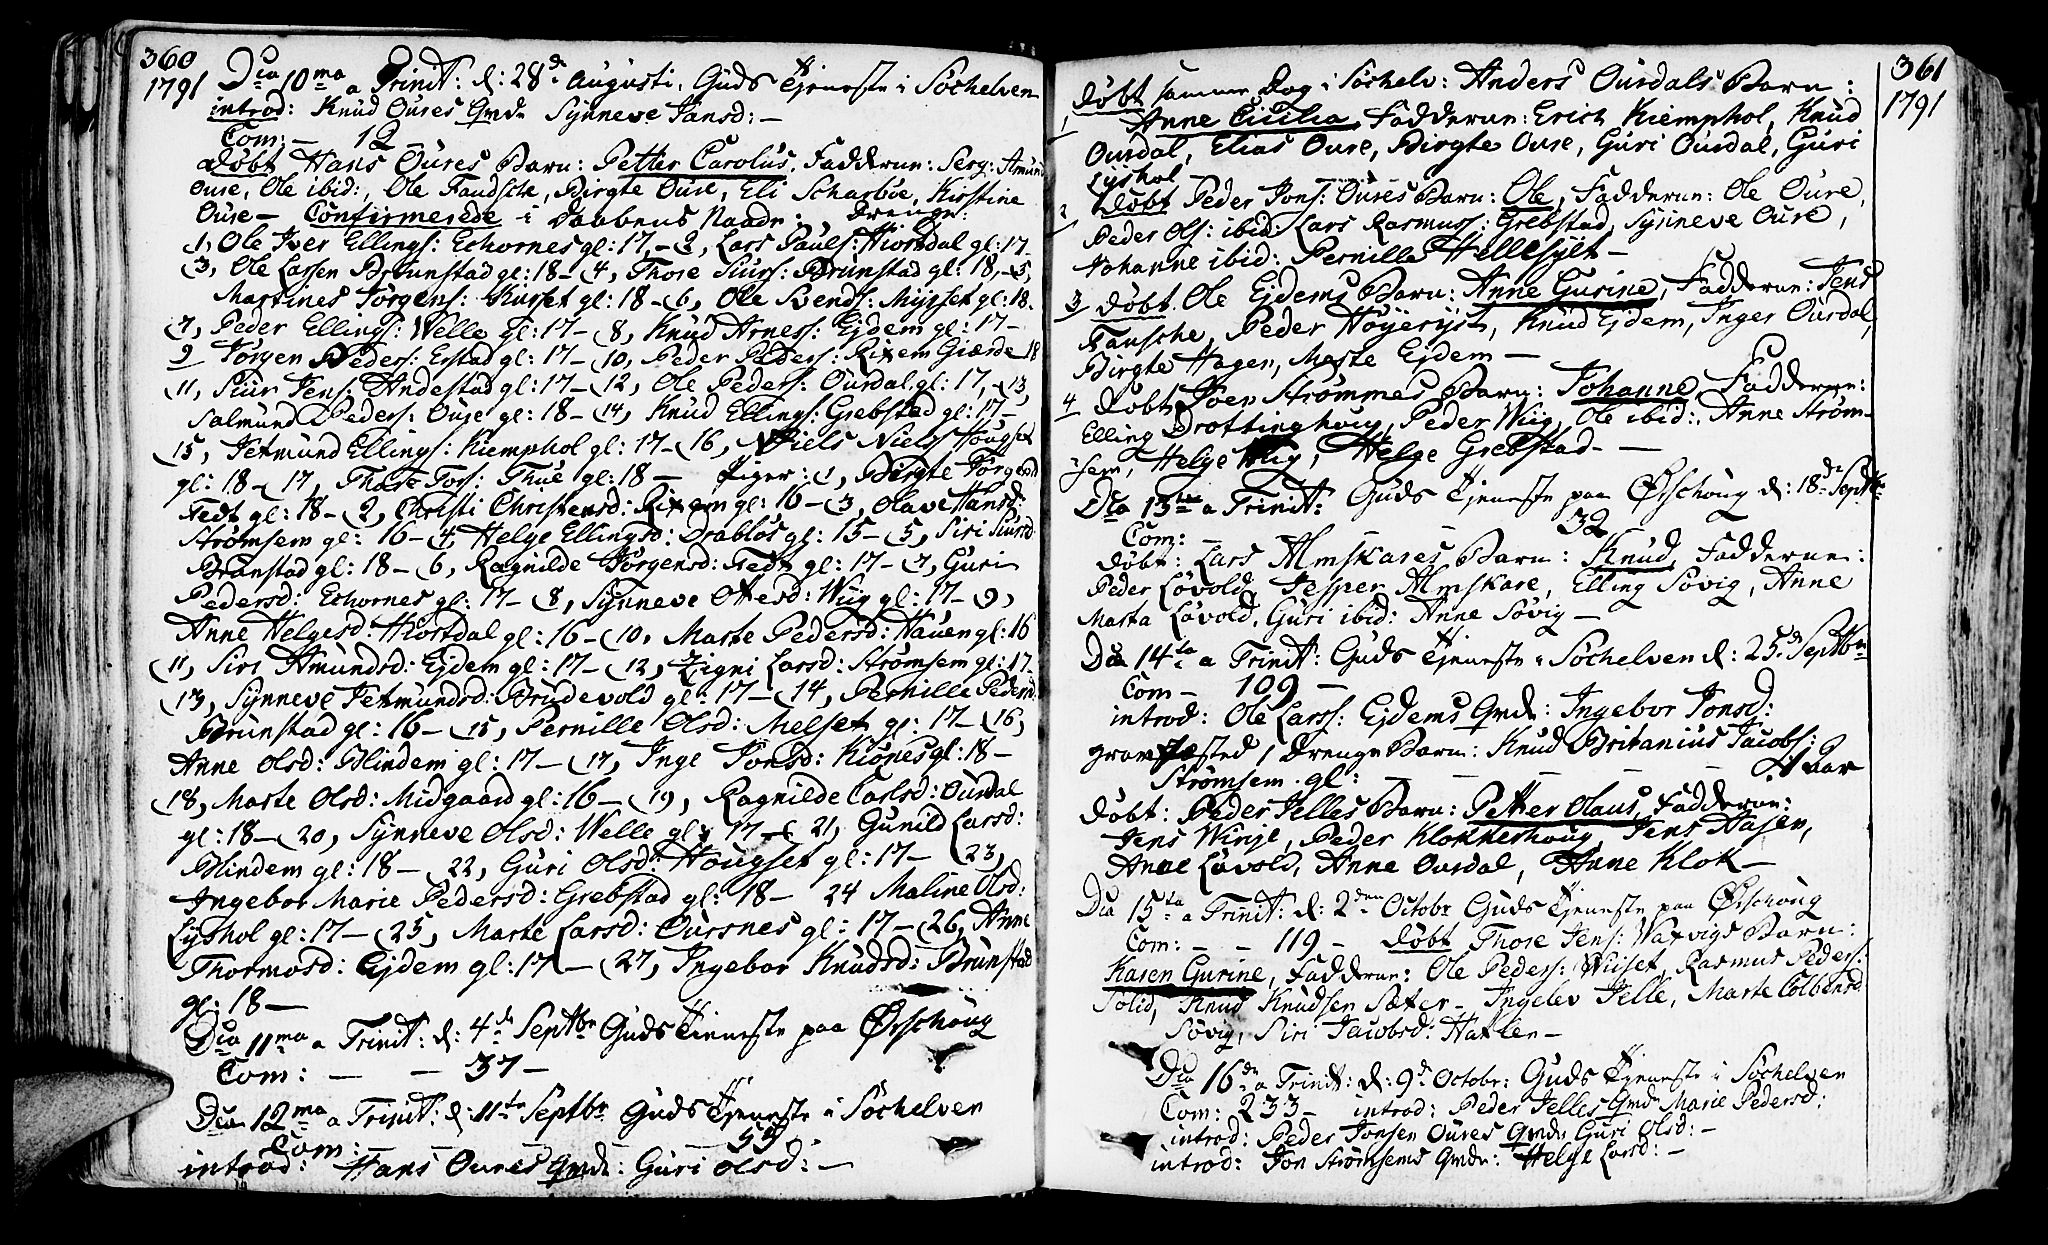 360
1791
Dca 10ma a Trinit: d: 28de Augusti, Guds Tjeneste i Söchelven
introd: Knud Oures Qvnde Synneve Jansd: —
Com: — 12 —
døbt Hans Oures Barn: Petter Carolus, Fadderne: Serg: Amun
Oure, Ole ibid:, Ole Fausche, Birgte Oure, Eli Scharböe, Kirstine
Oure — Confirmerede i Daabens Naade: Drenge:
1, Ole Iver Ellings: Echornes gl: 17 — 2, Lars Pauls: Hiortdal gl: 17
3, Ole Larsen Brunstad gl: 18 — 4, Thore Siurs: Brunstad gl: 18, — 5,
Martines Jörgens: Kurset gl: 18 — 6, Ole Svends: Myrset gl: 18.
7, Peder Ellings: Welle gl: 17 — 8, Knud Arnes: Ejdem gl: 17 —
9 Jörgen Peders: Erstad gl: 17 — 10, Peder Peders: Rixem Giærde 18
11, Siur Jens: Andestad gl: 17 — 12, Ole Peders: Ourdal gl: 17, — 13,
Salmund Peders: Oure gl: 18 — 14, Knud Ellings: Grebstad gl: 17 —
15, Jetmund Ellings: Kiemphol gl: 17 — 16, Niels Niels: Hougset
gl: 18 — 17, Thore Tors: Thue gl: 18 — Piger: 1, Birgte Jörgensd
Fedt gl: 18 — 2, Christi Christensd: Rixem gl: 16 — 3, Olave Hansd:
Strömsem gl: 16 — 4, Helge Ellingsd: Drablös gl: 15 — 5, Siri Siursd:
Brunstad gl: 18 — 6, Ragnilde Jörgensd: Fedt gl: 17 — 7, Guri
Pedersd: Echornes gl: 17 — 8, Synneve Ottesd: Wiig gl: 17 — 9,
Anne Helgesd: Hiortdal gl: 16 — 10, Marte Pedersd: Hauen gl: 16
11, Siri Amundsd: Ejdem gl: 17 — 12, Zigni Larsd: Strömsem gl: 17.
13, Synneve Jetmundsd: Brudevold gl: 17 — 14, Pernille Pedersd
Brunstad gl: 16 — 15, Pernille Olsd: Melset gl: 17 — 16,
Anne Olsd: Blindem gl: 17 — 17, Inge Jonsd: Kiönes gl: 18 —
18, Marte Olsd: Midgaard gl: 16 — 19, Ragnilde Carlsd: Ourdal
gl: 18 — 20, Synneve Olsd: Welle gl: 17 — 21, Gunild Larsd:
Blindem gl: 18 — 22, Guri Olsd: Hougset gl: 17 — 23,
Ingebor Marie Pedersd: Grebstad gl: 18 — 24 Maline Olsd:
Lyshol gl: 17 — 25, Marte Larsd: Oursnes gl: 17 — 26, Anne
Thormosd: Ejdem gl: 17 — 27, Ingebor Knudsd: Brunstad
gl: 18 —
Dca 11ma a Trinit: d: 4de Septbr Guds Tieneste paa Ørschoug
Com: — — 37 —
Dca 12ma a Trinit: d: 11te Septbr Guds Tjeneste i Söchelven
Com: — — 55.
introd: Hans Oures Qvnde: Guri Olsd: —
361
1791
døbt samme Dag i Söchelv: Anders Ourdals Barn:
1, Anne Cicilia, Fadderne: Erich Kiemphol, Knud
Ourdal, Elias Oure, Birgte Oure, Guri Ourdal, Guri
Lyshol —
2, Døbt Peder Jons: Oures Barn: Ole, Fadderne: Ole Oure,
Peder Ols: ibid: Lars Rasmuss: Grebstad, Synneve Oure,
Johanne ibid: Pernilla Hellesylt —
3 døbt. Ole Ejdems Barn: Anne Gurine, Fadderne: Jens
Fausche, Peder Höyeryst, Knud Ejdem, Inger Ourdal,
Birgte Hagen, Marte Ejdem —
4 døbt Joen Strömmes Barn: Johanne, Fadderne:
Elling Drottinghoug, Peder Wiig, Ole ibid:, Anne Ström-
sem, Helge Wiig, Helge Grebstad — —
Dca 13tia a Trinit: Guds Tjeneste paa Ørschoug d: 18de Septbr
Com: — 32
døbt: Lars Almskares Barn: Knud, Fadderne:
Peder Lövold, Jesper Almskare, Elling Sövig, Anne
Marta Lövold, Guri ibid: Anne Sövig —
Dca 14ta a Trinit: Guds Tjeneste i Söchelven d: 25de Septbr
Com — 109 —
introd: Ole Larss: Ejdems Qvnde: Ingebor Jonsd:
gravfæsted 1 Drenge Barn: Knud Britanius Jacobs:
Strömsem gl: — — — — 2 aar
døbt: Peder Jelles Barn: Petter Olaus, Fadderne:
Jens Winje, Peder Klokkerhoug, Jens Hasen,
Anne Lövold, Anne Ourdal, Anne Klok —
Dca 15ta a Trinit: d: 2den Octobr Guds Tjeneste paa Ørschoug
Com: — — 119 — døbt Thore Jens: Watvigs Barn:
Karen Gurine, Fadderne: Ole Peders: Wiiset, Rasmus Peders:
Solid, Knud Knudsen Sæter — Ingelev Jelle, Marte Colbensd
Sövig, Siri Jacobsd: Haxlen —
Dca 16de a Trinit: d: 9de Octobr: Guds Tjeneste i Söchelven
Com: 233 — introd: Peder Jelles Qvnde Marie Pedersd:
introd: Peder Jonsen Oures Qvnde Guri Olsd: —
introd: Jon Strömsems Qvnde: Helge Larsd: —